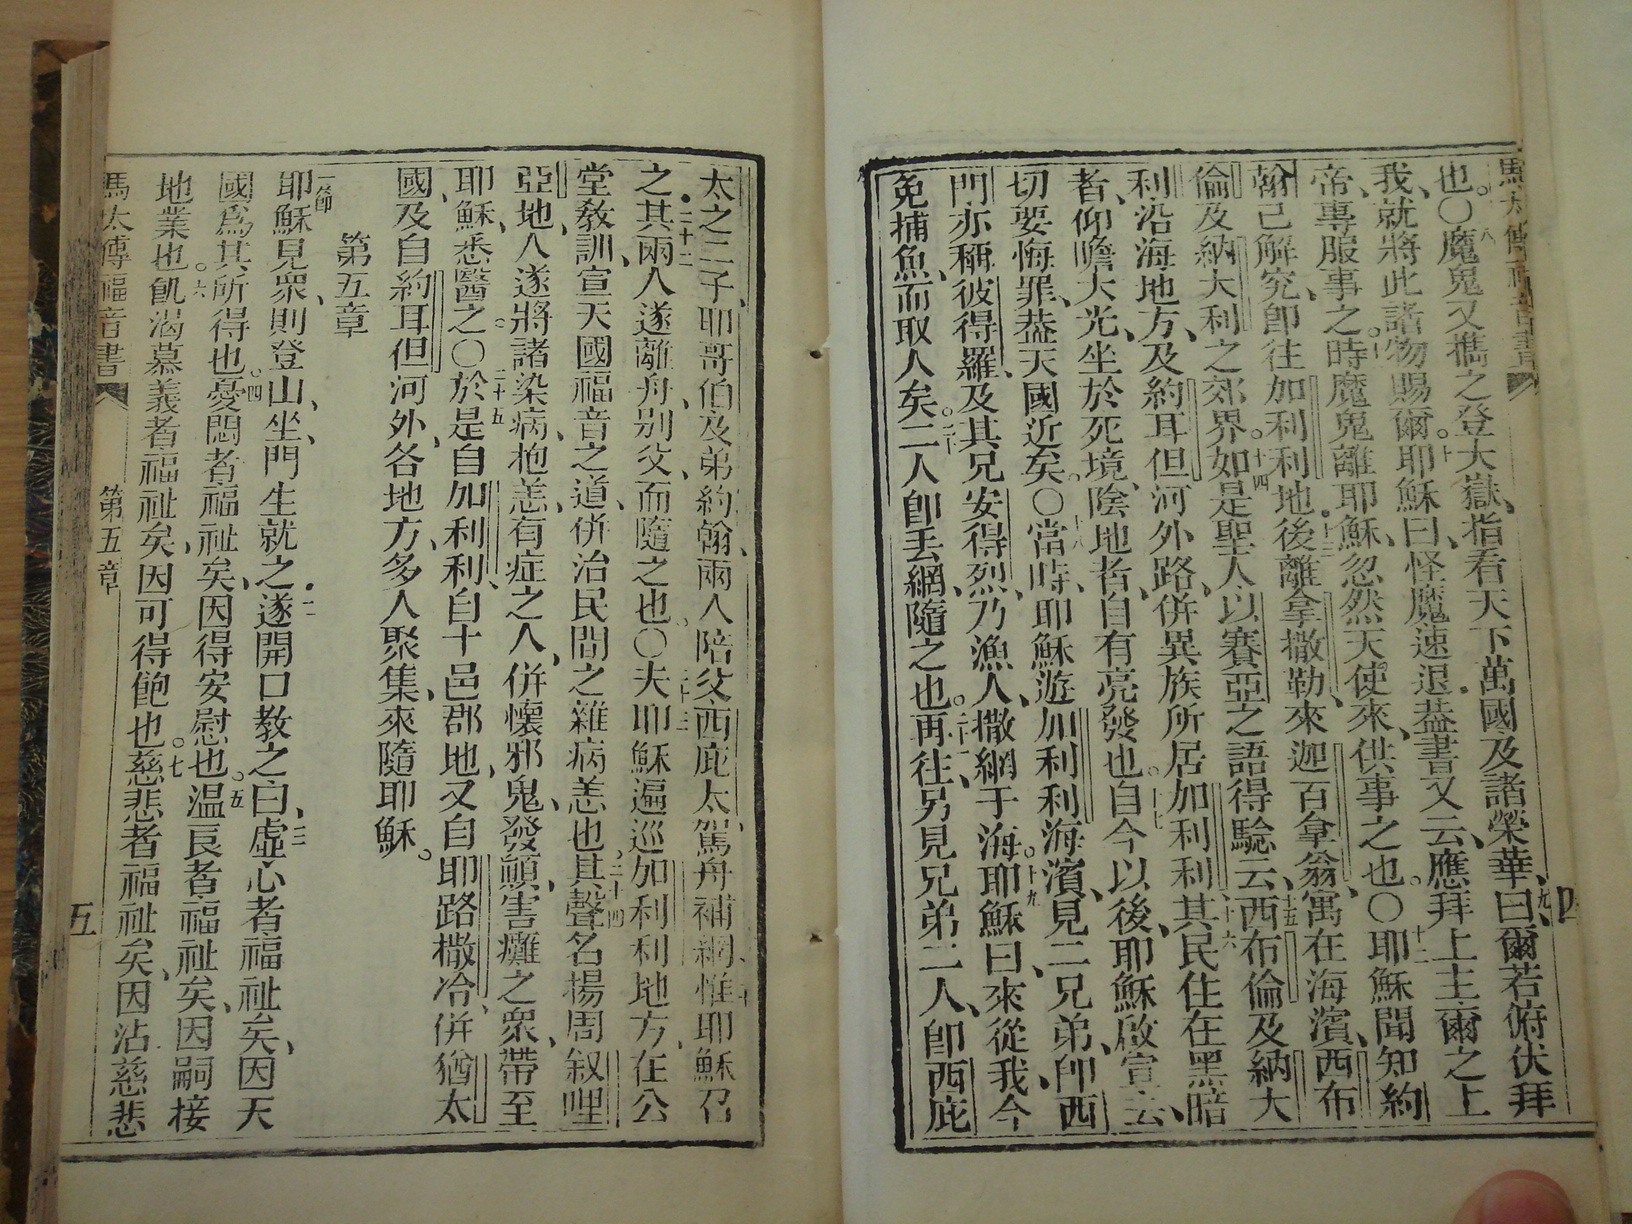 馬太傳福音書
四
也。○八魔鬼又攜之登大嶽、指看天下萬國及諸榮華、九曰、爾若俯伏拜
我、就將此諸物賜爾。十耶穌曰、怪魔速退、蓋書又云、應拜上主爾之上
帝、專服事之。十一時魔鬼離耶穌、忽然天使來、供事之也。○十二耶穌聞知約
翰已解究、卽往加利利地、十三後離拿撒勒、來迦百拿翁、寓在海濱、西布
倫及納大利之郊界。十四如是聖人以賽亞之語得驗、云、十五西布倫及納大
利沿海地方、及約耳但河外路、併異族所居加利利、十六其民住在黑暗
者、仰瞻大光、坐於死境、陰地者、自有亮發也。十七自今以後、耶穌啟宣云、
切要悔罪、蓋天國近矣。○十八當時、耶穌遊加利利海濱、見二兄弟、卽西
門亦稱彼得羅、及其兄安得烈、乃漁人、撒網于海。十九耶穌曰、來從我、今
免捕魚、而取人矣。二十二人卽丟網、隨之也。二十一再往、另見兄弟二人、卽西庇
太之二子、耶哥伯及弟約翰、兩人陪父西庇太駕舟補網、惟耶穌召
之、二十二其兩人遂離舟、別父、而隨之也。○二十三夫耶穌遍巡加利利地方、在公
堂教訓、宣天國福音之道、併治民間之雜病恙也。二十四其聲名揚周叙哩
亞地、人遂將諸染病、抱恙、有症之人、併懷邪鬼、發顛、害癱之衆、帶至
耶穌、悉醫之。○二十五於是自加利利、自十邑郡地、又自耶路撒冷、併猶太
國、及自約耳但河外、各地方、多人聚集、來隨耶穌。
第五章
一節耶穌見衆、則登山、坐、門生就之、二遂開口教之、曰、三虛心者福祉矣、因天
國爲其所得也。四憂悶者福祉矣、因得安慰也。五溫良者福祉矣、因嗣接
地業也。六飢渴慕義者福祉矣、因可得飽也。七慈悲者福祉矣、因沾慈悲
馬太傳福音書
第五章
五